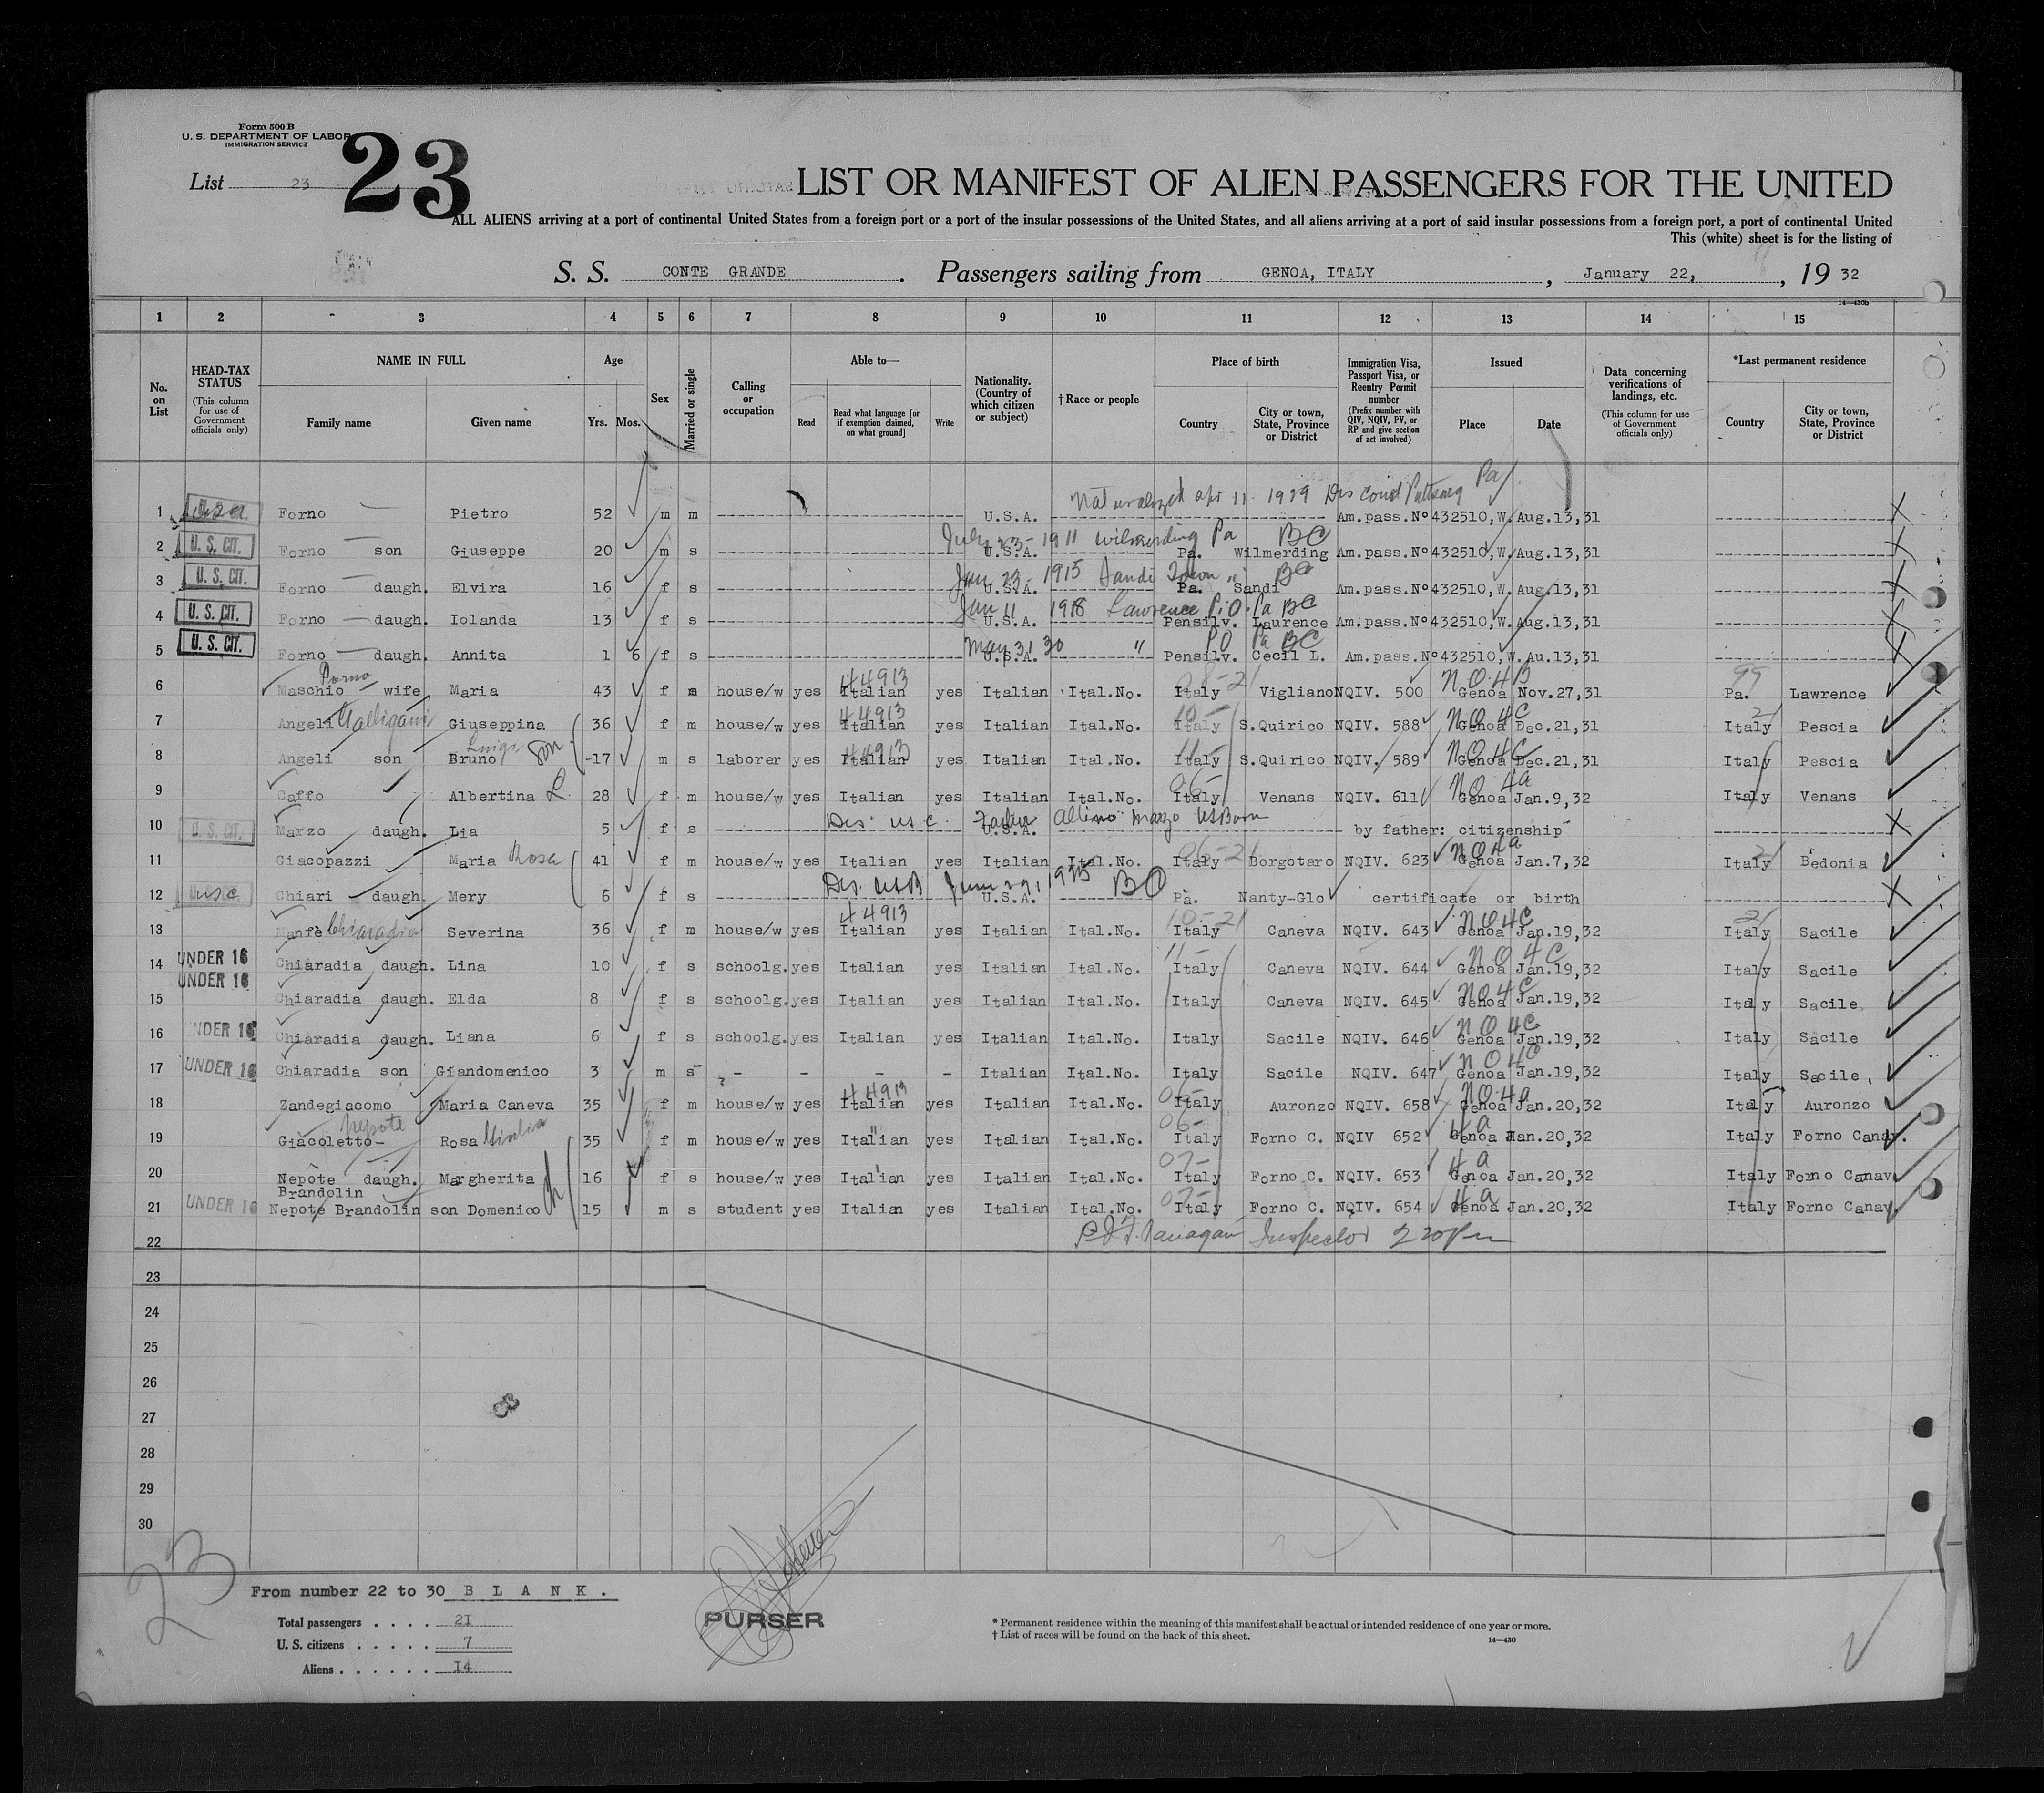 Form 500 B
U. S. DEPARTMENT OF LABOR
IMMIGRATION SERVICE
List 23
23
LIST OR MANIFEST OF ALIEN PASSENGERS FOR THE UNITED
ALL ALIENS arriving at a port of continental United States from a foreign port or a port of the insular possessions of the United States, and all aliens arriving at a port of said insular possessions from a foreign port, a port of continental United
This (white) sheet is for the listing of
S. S. CONTE GRANDE. Passengers sailing from GENOA, ITALY, January 22, , 19 32
14—430b
1 2 3 4 5 6 7 8 9 10 11 12 13 14 15
No. on List
HEAD-TAX STATUS (This column for use of Government officials only)
NAME IN FULL Family name Given name
Age Yrs. Mos.
Sex
Married or single
Calling or occupation
Able to— Read Read what language [or if exemption claimed, on what ground] Write
Nationality. (Country of which citizen or subject)
†Race or people
Place of birth Country City or town, State, Province or District
Immigration Visa, Passport Visa, or Reentry Permit number (Prefix number with QIV, NQIV, PV, or RP and give section of act involved)
Issued Place Date
Data concerning verifications of landings, etc. (This column for use of Government officials only)
*Last permanent residence Country City or town, State, Province or District
Naturalized apr 11 1929 Pa
1 Forno Pietro 52 m m U.S.A. Am.pass.Nº432510,W.Aug.13,31
July 23-1911 Wilmerding Pa BC
2 U. S. CIT. Forno son Giuseppe 20 m s U.S.A. Pa. Wilmerding Am.pass.Nº432510,W.Aug.13,31
Jan 23-1915 BC
3 U. S. CIT. Forno daugh. Elvira 16 f s U.S.A. Pa. Sandi Am.pass.Nº432510,W.Aug.13,31
Jan 11 1918 Lawrence P.O. Pa BC
4 U. S. CIT. Forno daugh. Iolanda 13 f s U.S.A. Pensilv. Laurence Am.pass.Nº432510,W.Aug.13,31
May 31 30 " PO Pa BC
5 U. S. CIT. Forno daugh. Annita 1 6 f s U.S.A. Pensilv. Cecil L. Am.pass.Nº432510,W.Au.13,31
Forno 44913 NO4B 99
6 Maschio wife Maria 43 f m house/w yes Italian yes Italian Ital.No. Italy Vigliano NQIV. 500 Genoa Nov.27,31 Pa. Lawrence
Galligani 44913 NO4C
7 Angeli Giuseppina 36 f m house/w yes Italian yes Italian Ital.No. Italy S.Quirico NQIV. 588 Genoa Dec.21,31 Italy Pescia
Luigi son 44913 NO4C
8 Angeli son Bruno 17 m s laborer yes Italian yes Italian Ital.No. Italy S.Quirico NQIV. 589 Genoa Dec.21,31 Italy Pescia
NO4a
9 Caffo Albertina L. 28 f m house/w yes Italian yes Italian Ital.No. Italy Venans NQIV. 611 Genoa Jan.9,32 Italy Venans
Des. USC. Father Marzo USBorn
10 U. S. CIT. Marzo daugh. Lia 5 f s U.S.A. by father: citizenship
NO4a
11 Giacopazzi Maria Rosa 41 f m house/w yes Italian yes Italian Ital.No. Italy Borgotaro NQIV. 623 Genoa Jan.7,32 Italy Bedonia
Des. USB June 29, 1925 BC
12 usc Chiari daugh. Mery 6 f s U.S.A. Pa. Nanty-Glo certificate or birth
44913 NO4C
13 Manfè Chiaradia Severina 36 f m house/w yes Italian yes Italian Ital.No. Italy Caneva NQIV. 643 Genoa Jan.19,32 Italy Sacile
NO4C
14 UNDER 16 Chiaradia daugh. Lina 10 f s schoolg. yes Italian yes Italian Ital.No. Italy Caneva NQIV. 644 Genoa Jan.19,32 Italy Sacile
NO4C
15 UNDER 16 Chiaradia daugh. Elda 8 f s schoolg. yes Italian yes Italian Ital.No. Italy Caneva NQIV. 645 Genoa Jan.19,32 Italy Sacile
NO4C
16 UNDER 16 Chiaradia daugh. Liana 6 f s schoolg. yes Italian yes Italian Ital.No. Italy Sacile NQIV. 646 Genoa Jan.19,32 Italy Sacile
NO4C
17 UNDER 16 Chiaradia son Giandomenico 3 m s - - - - Italian Ital.No. Italy Sacile NQIV. 647 Genoa Jan.19,32 Italy Sacile
44913 NO4a
18 Zandegiacomo Maria Caneva 35 f m house/w yes Italian yes Italian Ital.No. Italy Auronzo NQIV. 658 Genoa Jan.20,32 Italy Auronzo
Nepote 4a
19 Giacoletto- Rosa 35 f m house/w yes Italian yes Italian Ital.No. Italy Forno C. NQIV 652 Genoa Jan.20,32 Italy Forno Canav.
4a
20 Nepote daugh. Margherita 16 f s house/w yes Italian yes Italian Ital.No. Italy Forno C. NQIV. 653 Genoa Jan.20,32 Italy Forno Canav.
Brandolin
21 UNDER 16 Nepote Brandolin son Domenico 15 m s student yes Italian yes Italian Ital.No. Italy Forno C. NQIV. 654 4a Genoa Jan.20,32 Italy Forno Canav.
Inspector 220Pm
22
23
24
25
26
27
28
29
30
23
From number 22 to 30 B L A N K .
Total passengers . . . . 21
U. S. citizens . . . . . 7
Aliens . . . . . . 14
PURSER
* Permanent residence within the meaning of this manifest shall be actual or intended residence of one year or more.
† List of races will be found on the back of this sheet.
14—430